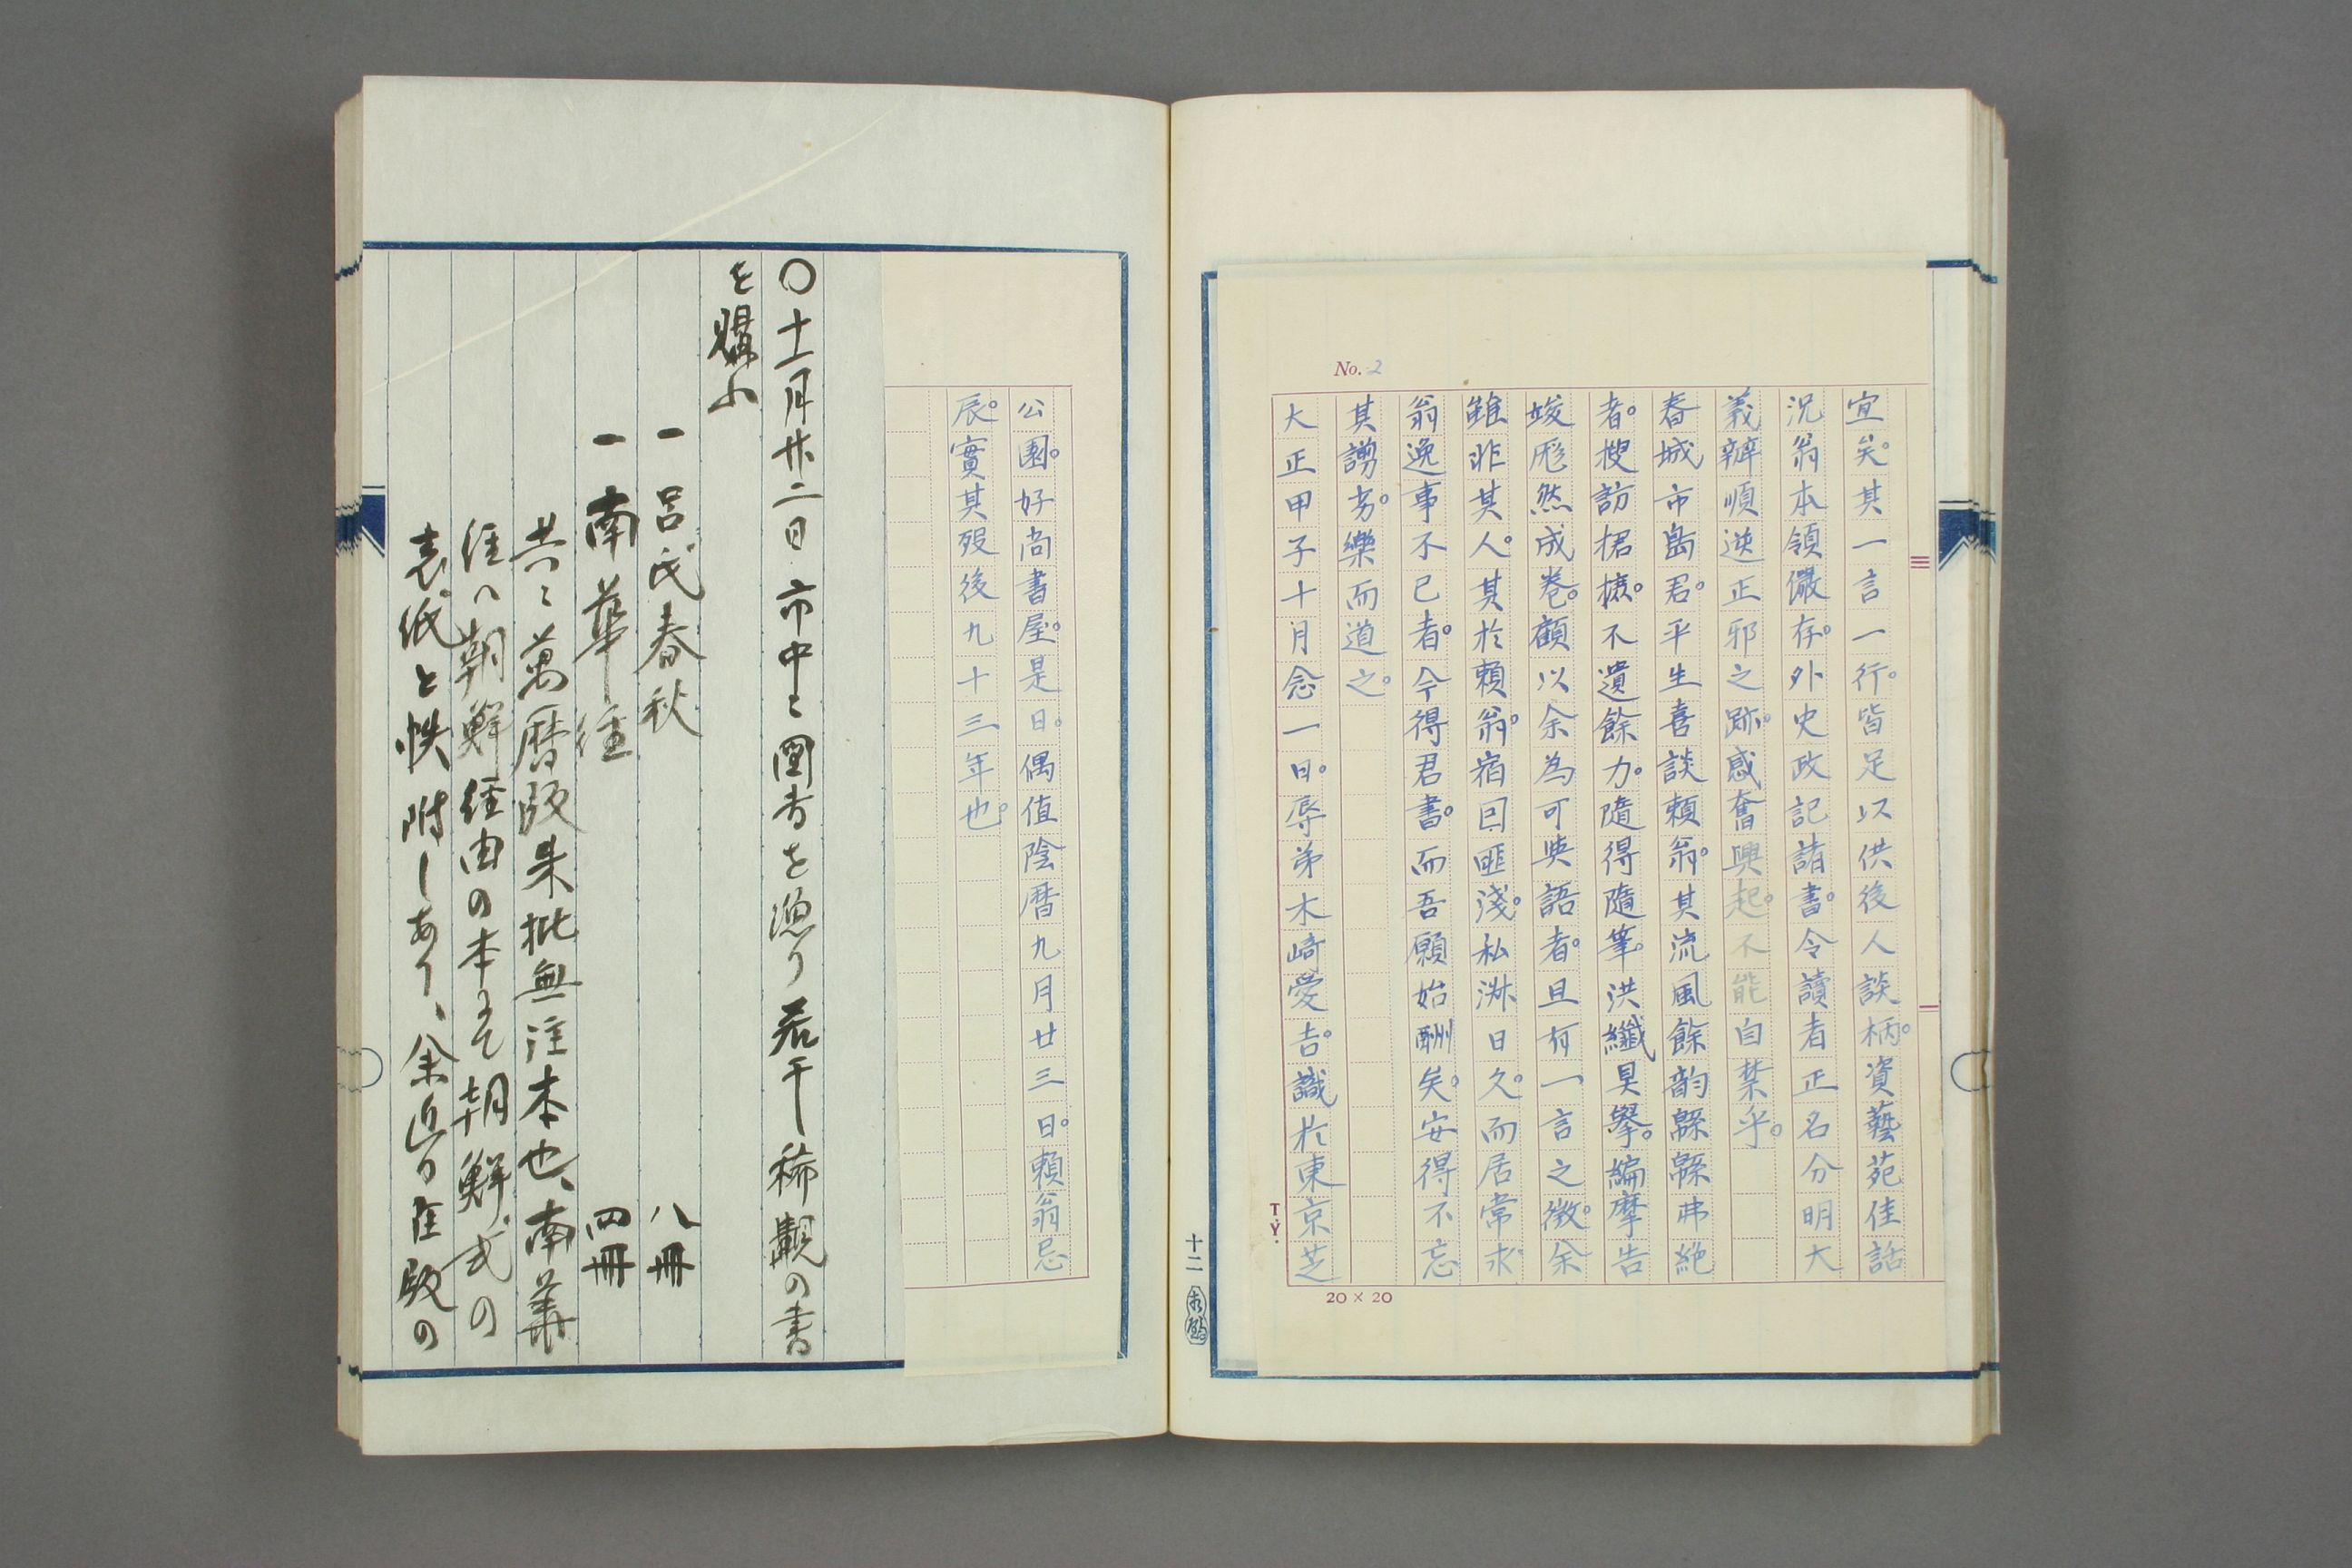 No. 2
宜矣。其一言一行。皆足以供後人談柄。資藝苑佳話
況翁本領儼存。外史政記諸書。令讀者正名分明大
義辯順逆正邪之跡。感奮興起。不能自禁乎。
春城市島君。平生喜談頼翁。其流風餘韵緜緜弗絶
者。搜訪捃摭。不遺餘力。隨得隨筆。洪纖具擧。編摩告
竣。彪然成巻。顧以余為可與語者。且有一言之徵。余
雖非其人。其於頼翁。宿因匪淺。私淑日久。而居常求
翁逸事不已者。今得君書。而吾願始酬矣。安得不忘
其謭劣。樂而道之。
大正甲子十月念一日。辱弟木﨑愛吉。識於東京芝
20×20
T.Y.
十二
公園。好尚書屋。是日。偶值陰暦九月廿三日。頼翁忌
辰。實其歿後九十三年也。
〇十一月廿二日市中ニ圖書を漁り若干稀覯の書
を購ふ
一呂氏春秋 八冊
一南華経 四冊
共ニ萬暦版朱批無注本也、南華
経ハ朝鮮経由の本にて朝鮮式の
表紙と帙附しあり、余近日旺版の